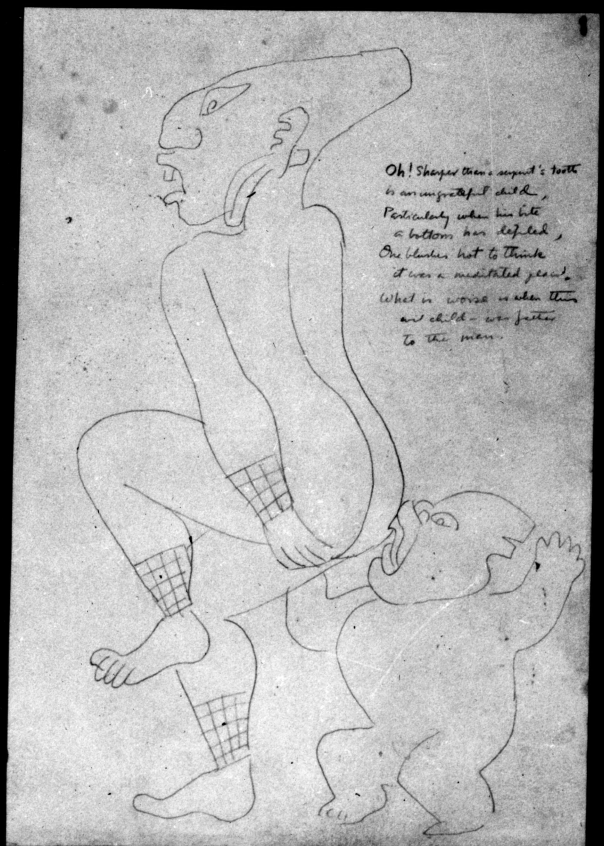 Oh! Sharper than a serpent's tooth
is an ungrateful child,
Particularly when his bite
a bottom has defiled,
One blushes not to think
it was a meditated plan.
What is worse is when this
child - was father
to the man.